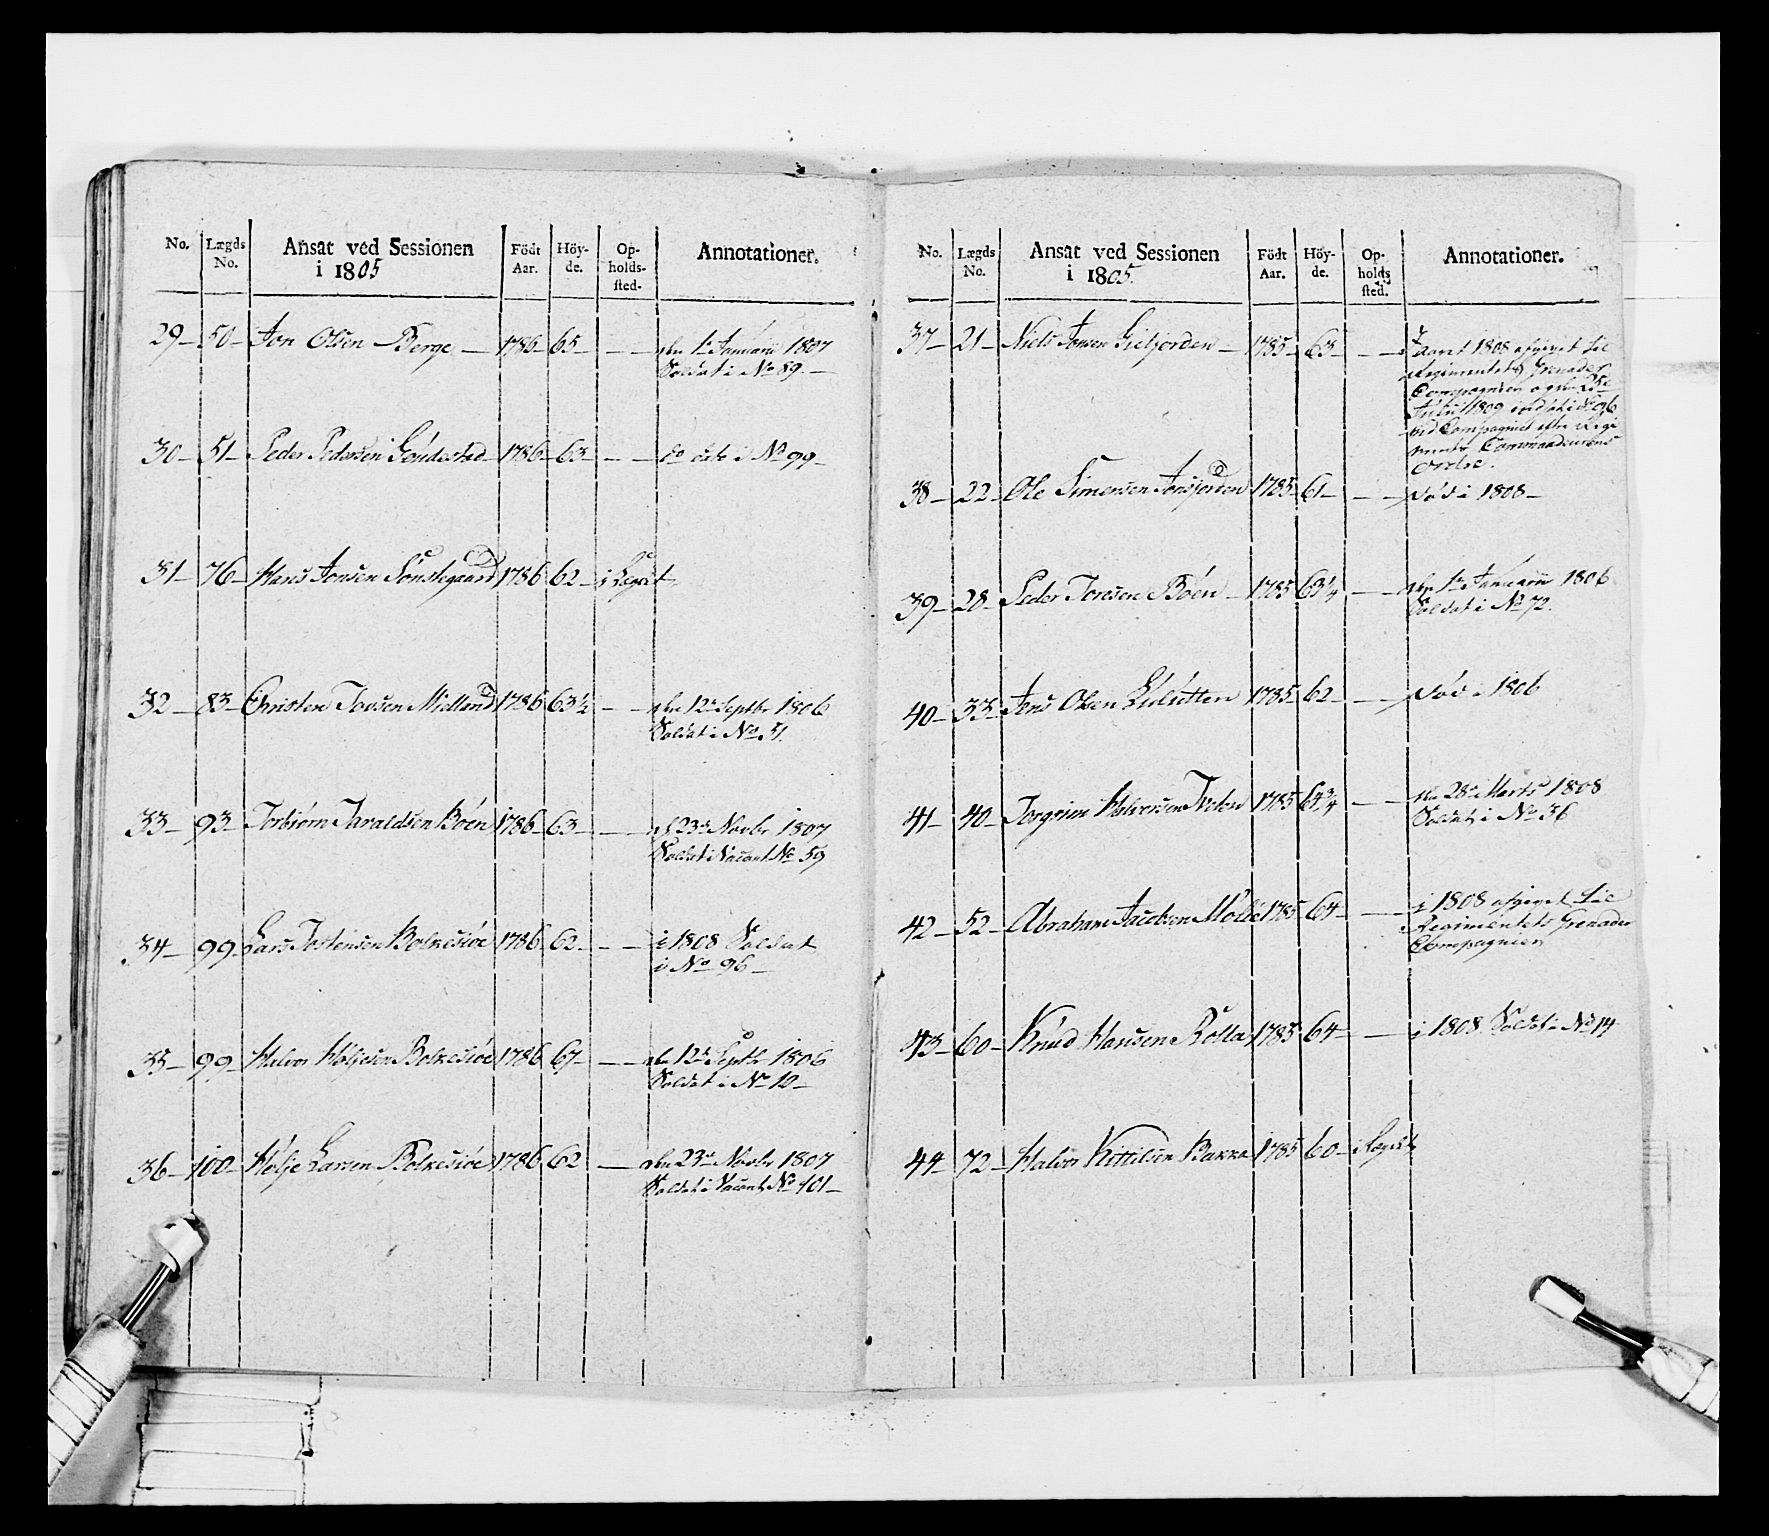 No. Lægds No. Ansat ved Sessionen i 1805 Födt Aar. Höy- de. Op- holds- sted. Annotationer.
29 — 50 — Jon Olsen Berge — 1786 — 65 — — — den 1te Januarii 1807
Soldat i No 89. —
30 — 51 — Peder Pedersen 1786 — 63 — — — do dato i No 99 —
31 — 76 — Hans Jonsen Sönstegaard 1786 62 — i Lægdet
32 — 83 — Christen Tovsen Midland 1786 63½ — — den 12te Septbr 1806
Soldat i No 31.
33 — 93 — Torbiörn Taraldsen Böen 1786 — 63 — — — d 23de Novbr 1807
Soldat i Vacant No 59
34 — 99 — Lars Bolkesiöe 1786 62 — — — i 1808 Soldat
i No 96 —
35 — 99 — Halvor Höljesen Bolkesiöe 1786 67 — — — den 12te Septbr 1806
Soldat i No 10 —
36 — 100 — Hölje Larsen Bolkesiöe 1786 62 — den 23de Novbr 1807
Soldat i Vacant No 101 —
No. Lægds No. Ansat ved Sessionen i 1805. Födt Aar. Höy- de. Op- holds sted. Annotationer.
37 — 21 — Niels Jonsen — 1785 — 63 — — — I aaret 1808 afgivet til
Regimentets Grenader
Compagnie og den
1809 i No 96
ved Compagniet efter Regi
ments Commandeurens
Ordre.
38 — 22 — Ole Simensen 1785 — 61 — — — Död i 1808 —
39 — 28 — Peder Toresen Böen — 1785 63¼ — — den 1te Januarii 1806
Soldat i No 72.
40 — 33 — Jens Olsen 1785 — 62 — — — Död i 1806
41 — 40 — Torgrim Halvorsen Tveten 1785 63¾ — — den 28de Marts 1808
Soldat i No 36
42 — 52 — Abraham Jacobsen 1785 64 — — i 1808 afgivet til
Regimentets Grenader
Compagnien
43 — 60 — Knud Hansen Rolla 1785 64 — — i 1808 Soldat i No 14
44 — 72 — Halvor Kittilsen Bakka 1785 60 — i Lægdet